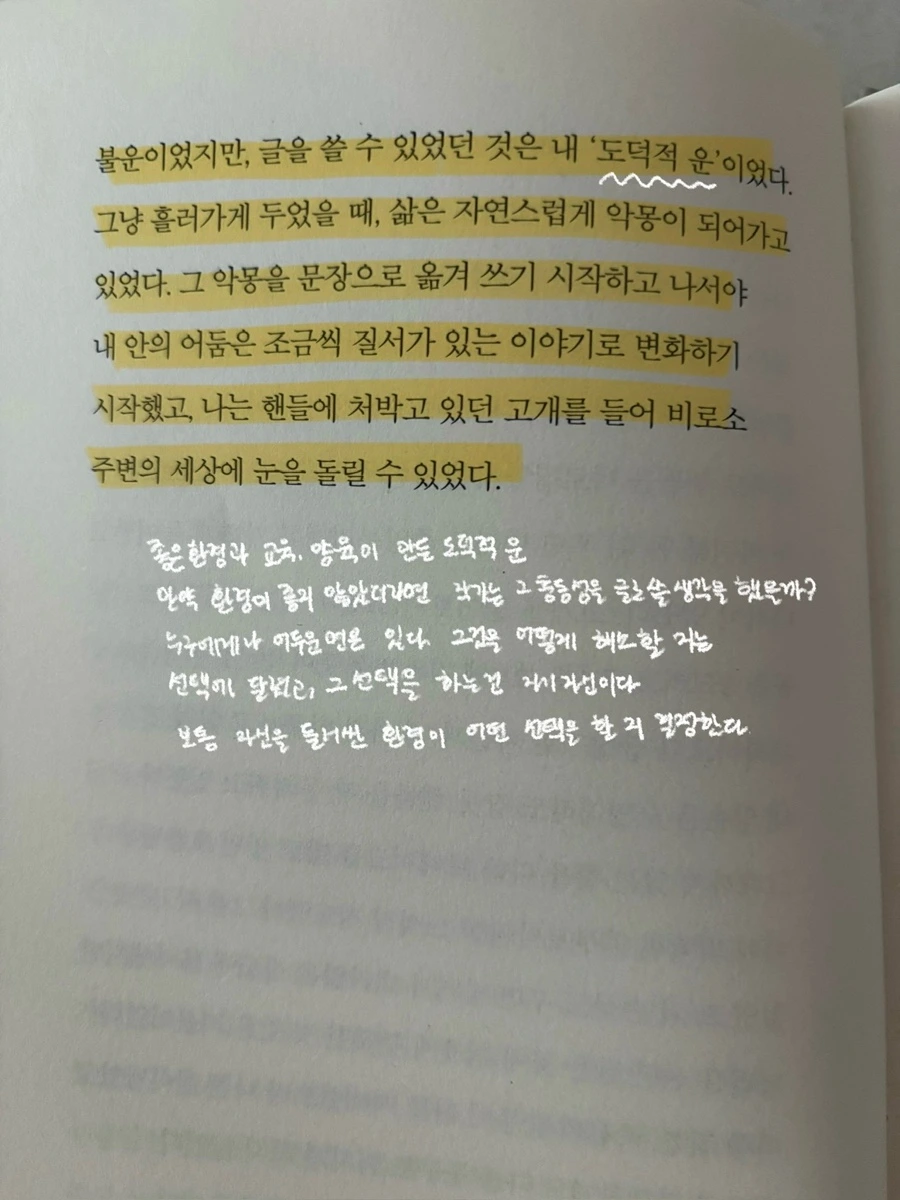 불운이었지만, 글을 쓸 수 있었던 것은 내 ‘도덕적 운’이었다.
그냥 흘러가게 두었을 때, 삶은 자연스럽게 악몽이 되어가고
있었다. 그 악몽을 문장으로 옮겨 쓰기 시작하고 나서야
내 안의 어둠은 조금씩 질서가 있는 이야기로 변화하기
시작했고, 나는 핸들에 처박고 있던 고개를 들어 비로소
주변의 세상에 눈을 돌릴 수 있었다.
좋은환경과 교육, 양육이 만든 도덕적 운
만약 환경이 좋지 않았더라면 작가는 그 충동성을 글로 쓸 생각을 했을까?
누구에게나 어두운면은 있다. 그것을 어떻게 해소할 지는
선택에 달렸고, 그 선택을 하는건 자기자신이다
보통 자신을 둘러싼 환경이 어떤 선택을 할 지 결정한다